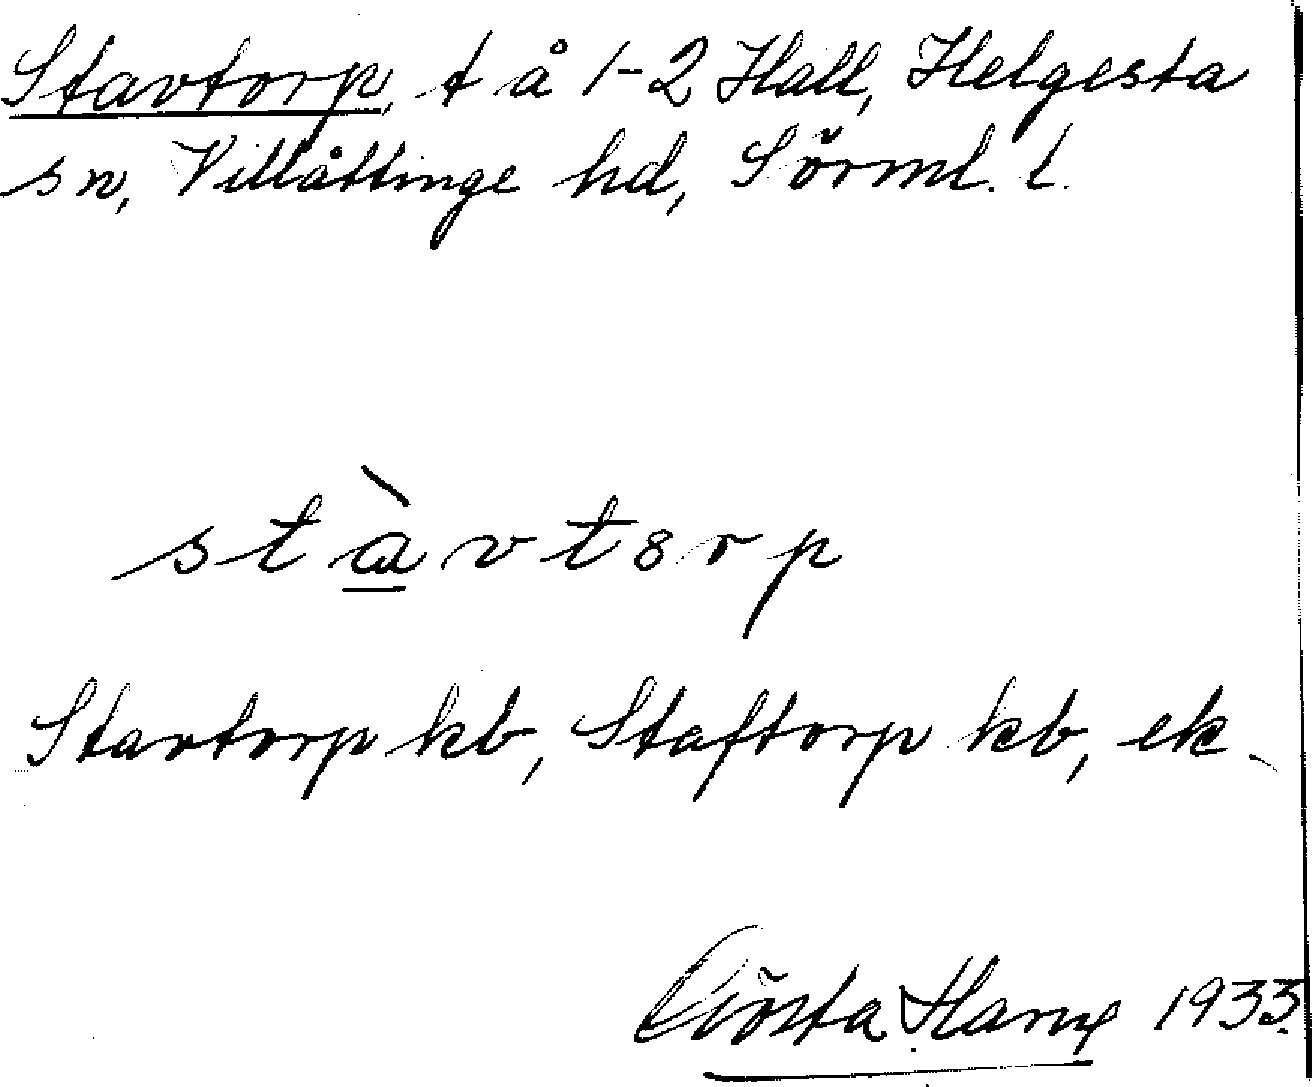 Stavtorp, t å 1-2 Hall, Helgesta
sn, Villåttinge hd, Sörml. l.
stàvtsrp
Stavtorp kb, Staftorp kb, ek.
Gösta Harng 1933.